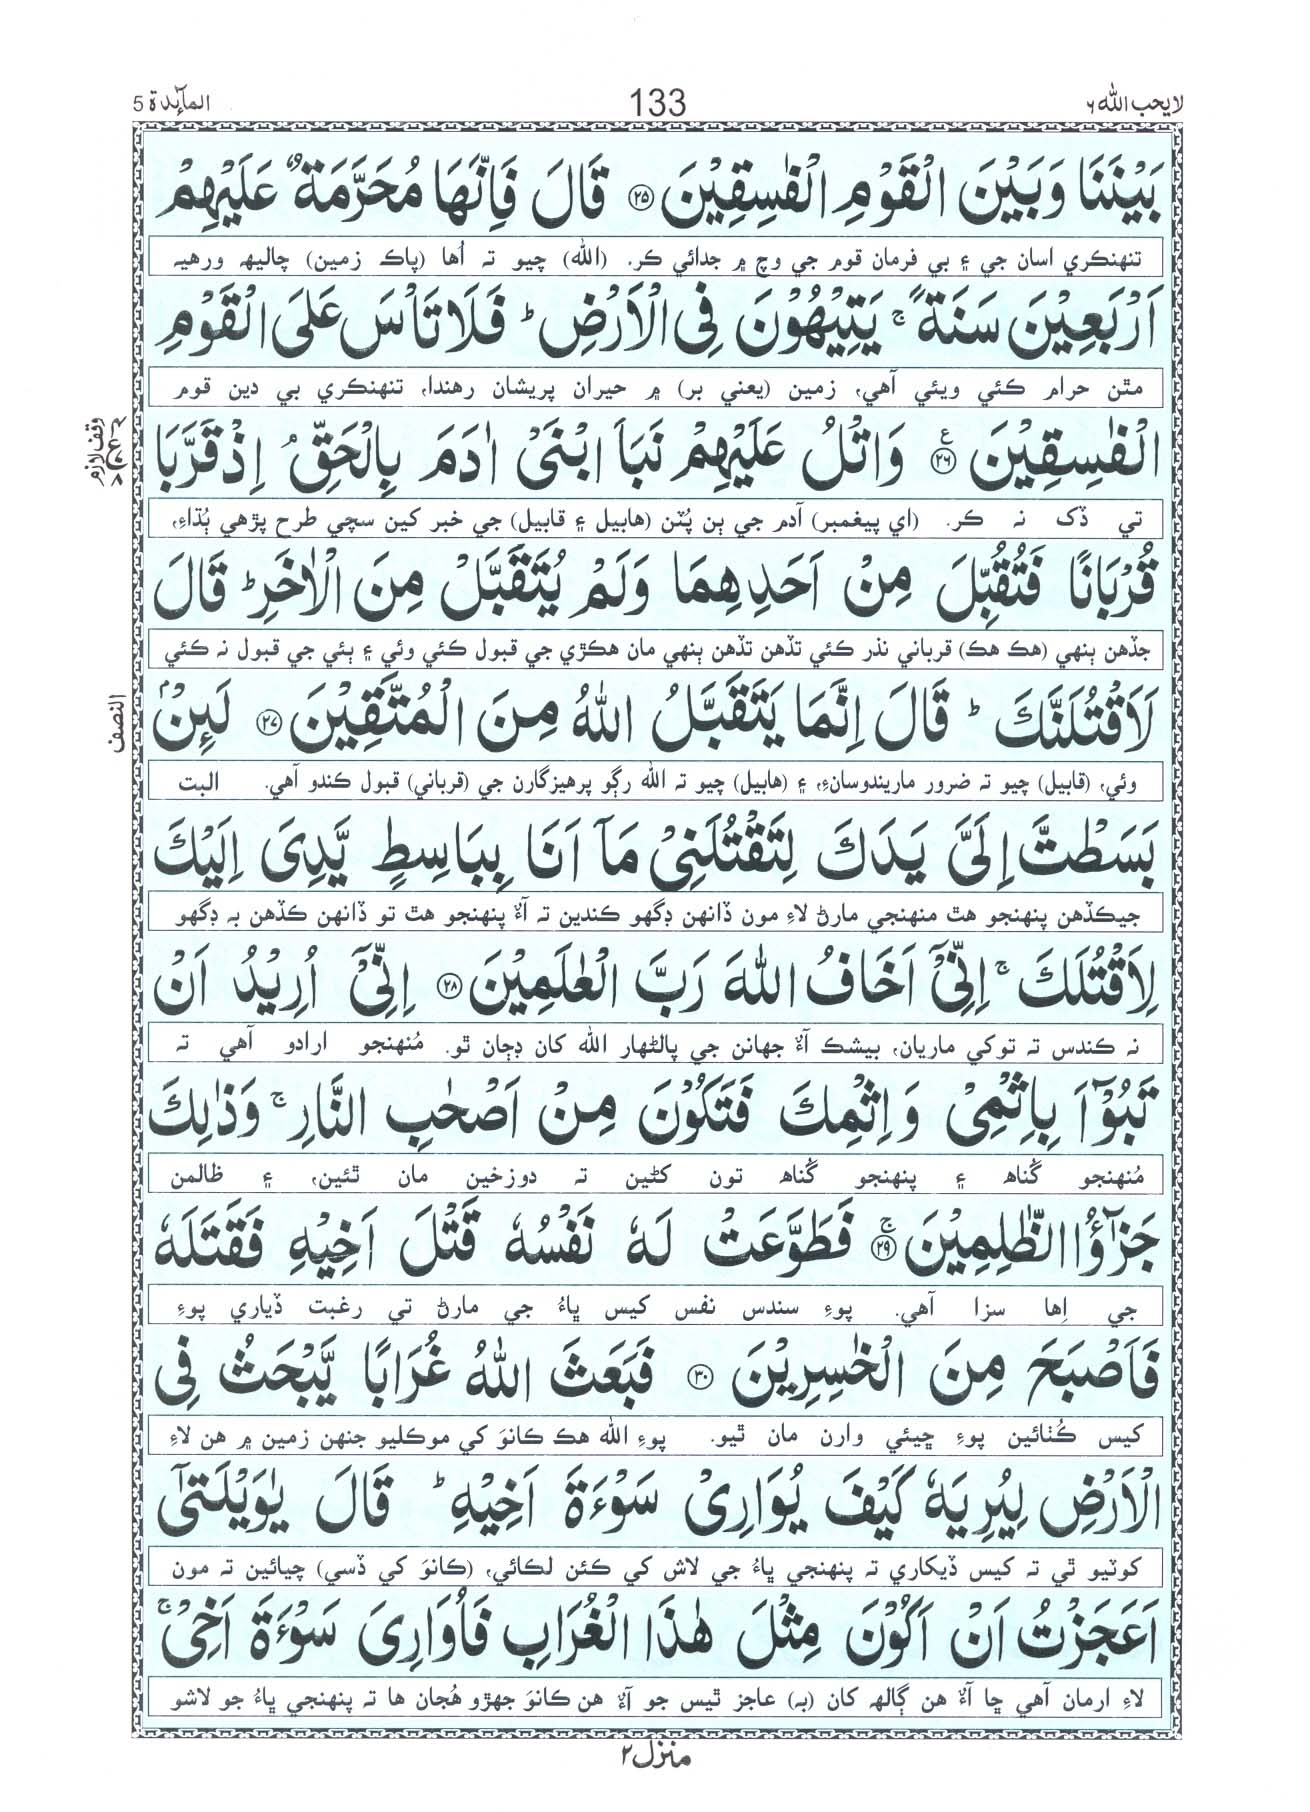 لا يحب الله ٦
133
المآئدة 5
بَيْنَنَا وَبَيْنَ الْقَوْمِ الْفٰسِقِيْنَ ﴿٢٥﴾ قَالَ فَاِنَّهَا مُحَرَّمَةٌ عَلَيْهِمْ
تنهنڪري اسان جي ۽ بي فرمان قوم جي وچ ۾ جدائي ڪر. (الله) چيو ته اُها (پاڪ زمين) چاليهه ورهيه
اَرْبَعِيْنَ سَنَةً ۚ يَتِيْهُوْنَ فِى الْاَرْضِ ؕ فَلَا تَاْسَ عَلَى الْقَوْمِ
مٿن حرام ڪئي ويئي آهي، زمين (يعني بر) ۾ حيران پريشان رهندا، تنهنڪري بي دين قوم
الْفٰسِقِيْنَ ﴿٢٦﴾ ع وَاتْلُ عَلَيْهِمْ نَبَاَ ابْنَىْ اٰدَمَ بِالْحَقِّ ۘ اِذْ قَرَّبَا
وقف لازم
تي ڏک نه ڪر. (اي پيغمبر) آدم جي ٻن پُٽن (هابيل ۽ قابيل) جي خبر کين سچي طرح پڙهي ٻُڌاءِ،
قُرْبَانًا فَتُقُبِّلَ مِنْ اَحَدِهِمَا وَلَمْ يُتَقَبَّلْ مِنَ الْاٰخَرِ ؕ قَالَ
جڏهن ٻنهي (هڪ هڪ) قرباني نذر ڪئي تڏهن تڏهن ٻنهي مان هڪڙي جي قبول ڪئي وئي ۽ ٻئي جي قبول نه ڪئي
لَاَقْتُلَنَّكَ ؕ قَالَ اِنَّمَا يَتَقَبَّلُ اللّٰهُ مِنَ الْمُتَّقِيْنَ ﴿٢٧﴾ لَىِٕنْۢ
النصف
وئي، (قابيل) چيو ته ضرور ماريندوسانءِ، ۽ (هابيل) چيو ته الله رڳو پرهيزگارن جي (قرباني) قبول ڪندو آهي. البت
بَسَطْتَّ اِلَىَّ يَدَكَ لِتَقْتُلَنِىْ مَاۤ اَنَا بِبَاسِطٍ يَّدِىَ اِلَيْكَ
جيڪڏهن پنهنجو هٿ منهنجي مارڻ لاءِ مون ڏانهن ڊگهو ڪندين ته آءٌ پنهنجو هٿ تو ڏانهن ڪڏهن به ڊگهو
لِاَقْتُلَكَ ۚ اِنِّىْۤ اَخَافُ اللّٰهَ رَبَّ الْعٰلَمِيْنَ ﴿٢٨﴾ اِنِّىْۤ اُرِيْدُ اَنْ
نه ڪندس ته توکي ماريان، بيشڪ آءٌ جهانن جي پالڻهار الله کان ڊڄان ٿو. مُنهنجو ارادو آهي ته
تَبُوْٓاَ بِاِثْمِىْ وَاِثْمِكَ فَتَكُوْنَ مِنْ اَصْحٰبِ النَّارِ ۚ وَذٰلِكَ
مُنهنجو گُناهه ۽ پنهنجو گُناهه تون کڻين ته دوزخين مان ٿئين، ۽ ظالمن
جَزٰٓؤُا الظّٰلِمِيْنَ ۚ﴿٢٩﴾ فَطَوَّعَتْ لَهٗ نَفْسُهٗ قَتْلَ اَخِيْهِ فَقَتَلَهٗ
جي اِها سزا آهي. پوءِ سندس نفس کيس ڀاءُ جي مارڻ تي رغبت ڏياري پوءِ
فَاَصْبَحَ مِنَ الْخٰسِرِيْنَ ﴿٣٠﴾ فَبَعَثَ اللّٰهُ غُرَابًا يَّبْحَثُ فِى
کيس ڪُٺائين پوءِ ڇيئي وارن مان ٿيو. پوءِ الله هڪ ڪانوَ کي موڪليو جنهن زمين ۾ هن لاءِ
الْاَرْضِ لِيُرِيَهٗ كَيْفَ يُوَارِىْ سَوْءَةَ اَخِيْهِ ؕ قَالَ يٰوَيْلَتٰٓى
کوٽيو ٿي ته کيس ڏيکاري ته پنهنجي ڀاءُ جي لاش کي ڪئن لڪائي، (ڪانوَ کي ڏسي) چيائين ته مون
اَعَجَزْتُ اَنْ اَكُوْنَ مِثْلَ هٰذَا الْغُرَابِ فَاُوَارِىَ سَوْءَةَ اَخِىْ ۚ
لاءِ ارمان آهي ڇا آءٌ هن ڳالهه کان (به) عاجز ٿيس جو آءٌ هن ڪانوَ جهڙو هُجان ها ته پنهنجي ڀاءُ جو لاشو
منزل ٢